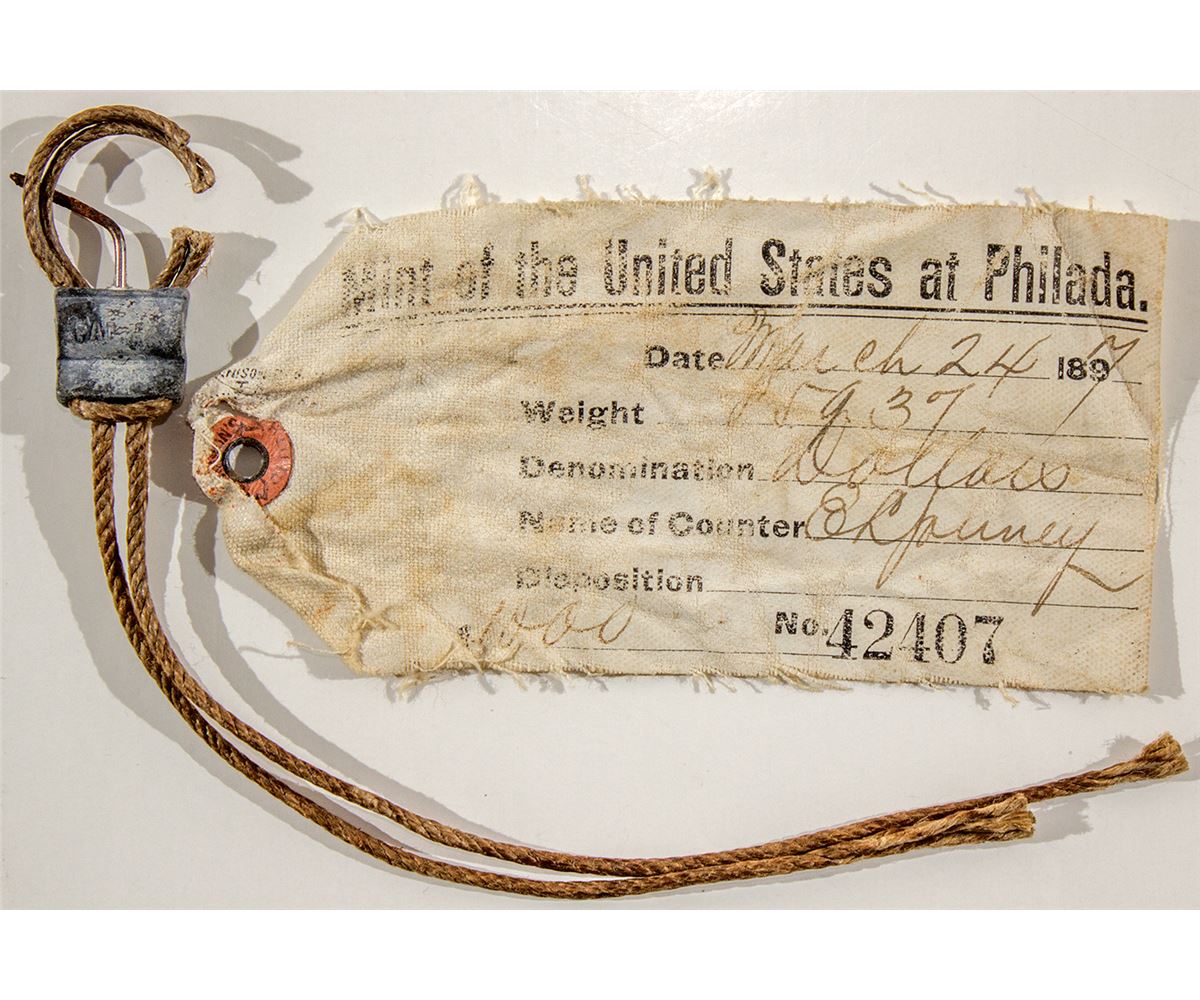 Mint of the United States at Philada.
Date March 24 1897
Weight 859 37
Denomination Dollars
Name of Counter
Disposition
$1000 No. 42407